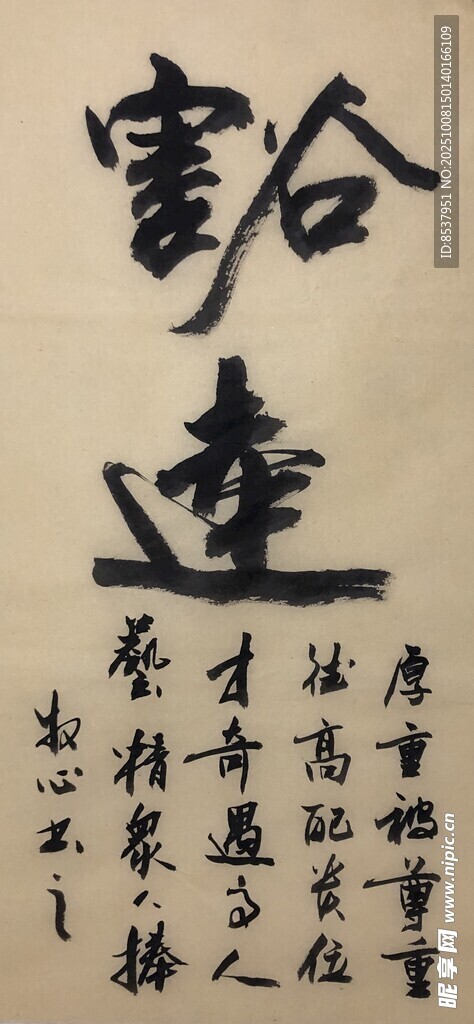 豁達
厚重被尊重
德高配贵位
才奇遇高人
藝精眾人捧
牧心书之
ID:8537951 NO:20251008150140166109
昵享网 www.nipic.cn